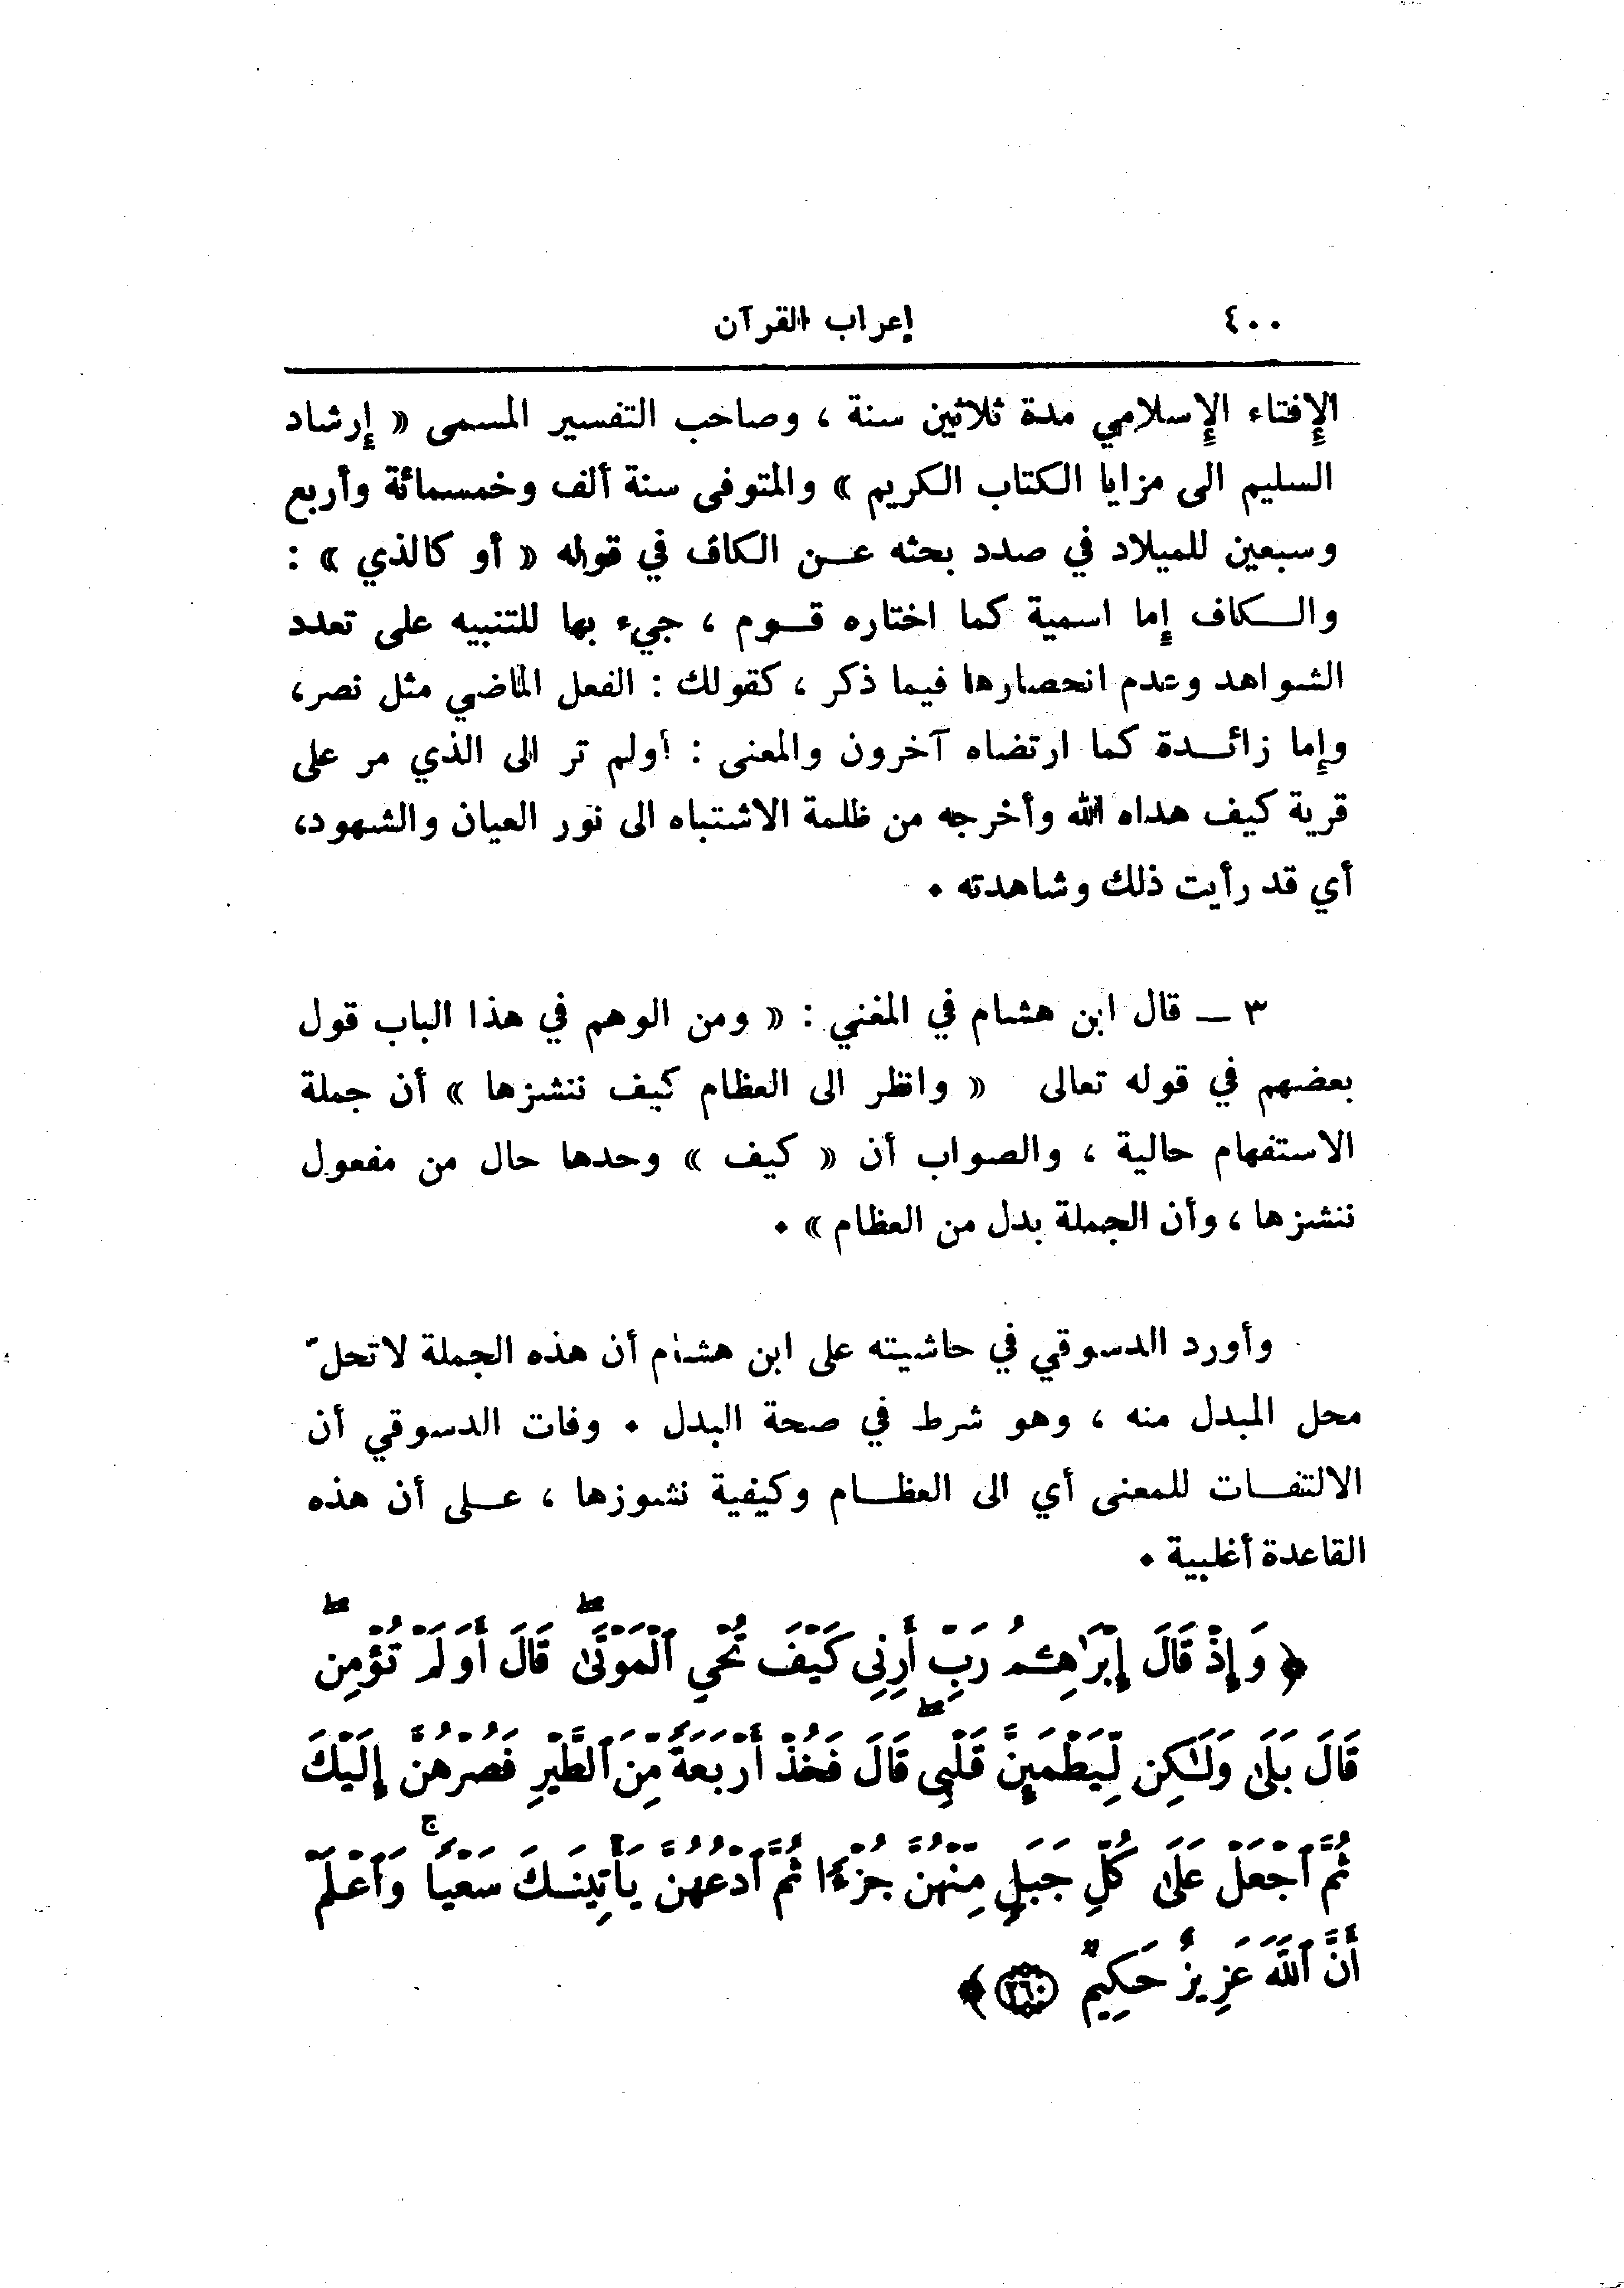 ٤٠٠ إعراب القرآن
الإفتاء الإسلامي مدة ثلاثين سنة ، وصاحب التفسير المسمى « إرشاد
السليم الى مزايا الكتاب الكريم » والمتوفى سنة ألف وخمسمائة وأربع
وسبعين للميلاد في صدد بحثه عـن الكاف في قوله « أو كالذي » :
والـكاف إما اسمية كما اختاره قـوم ، جيء بها للتنبيه على تعدد
الشواهد وعدم انحصارها فيما ذكر ، كقولك : الفعل الماضي مثل نصر،
وإما زائـدة كما ارتضاه آخرون والمعنى : أولم تر الى الذي مر على
قرية كيف هداه الله وأخرجه من ظلمة الاشتباه الى نور العيان والشهود،
أي قد رأيت ذلك وشاهدته .
٣ ــ قال ابن هشام في المغني : « ومن الوهم في هذا الباب قول
بعضهم في قوله تعالى « وانظر الى العظام كيف ننشزها » أن جملة
الاستفهام حالية ، والصواب أن « كيف » وحدها حال من مفعول
ننشزها ، وأن الجملة بدل من العظام » .
وأورد الدسوقي في حاشيته على ابن هشام أن هذه الجملة لاتحلّ
محل المبدل منه ، وهو شرط في صحة البدل . وفات الدسوقي أن
الالتفـات للمعنى أي الى العظـام وكيفية نشوزها ، عـلى أن هذه
القاعدة أغلبية .
﴿ وَإِذْ قَالَ إِبْرَٰهِـۧمُ رَبِّ أَرِنِى كَيْفَ تُحْيِ ٱلْمَوْتَىٰ ۖ قَالَ أَوَلَمْ تُؤْمِن ۖ
قَالَ بَلَىٰ وَلَـٰكِن لِّيَطْمَئِنَّ قَلْبِى ۖ قَالَ فَخُذْ أَرْبَعَةً مِّنَ ٱلطَّيْرِ فَصُرْهُنَّ إِلَيْكَ
ثُمَّ ٱجْعَلْ عَلَىٰ كُلِّ جَبَلٍ مِّنْهُنَّ جُزْءًا ثُمَّ ٱدْعُهُنَّ يَأْتِينَـكَ سَعْيًا ۚ وَٱعْلَمْ
أَنَّ ٱللَّهَ عَزِيزٌ حَكِيمٌ ٢٦٠ ﴾